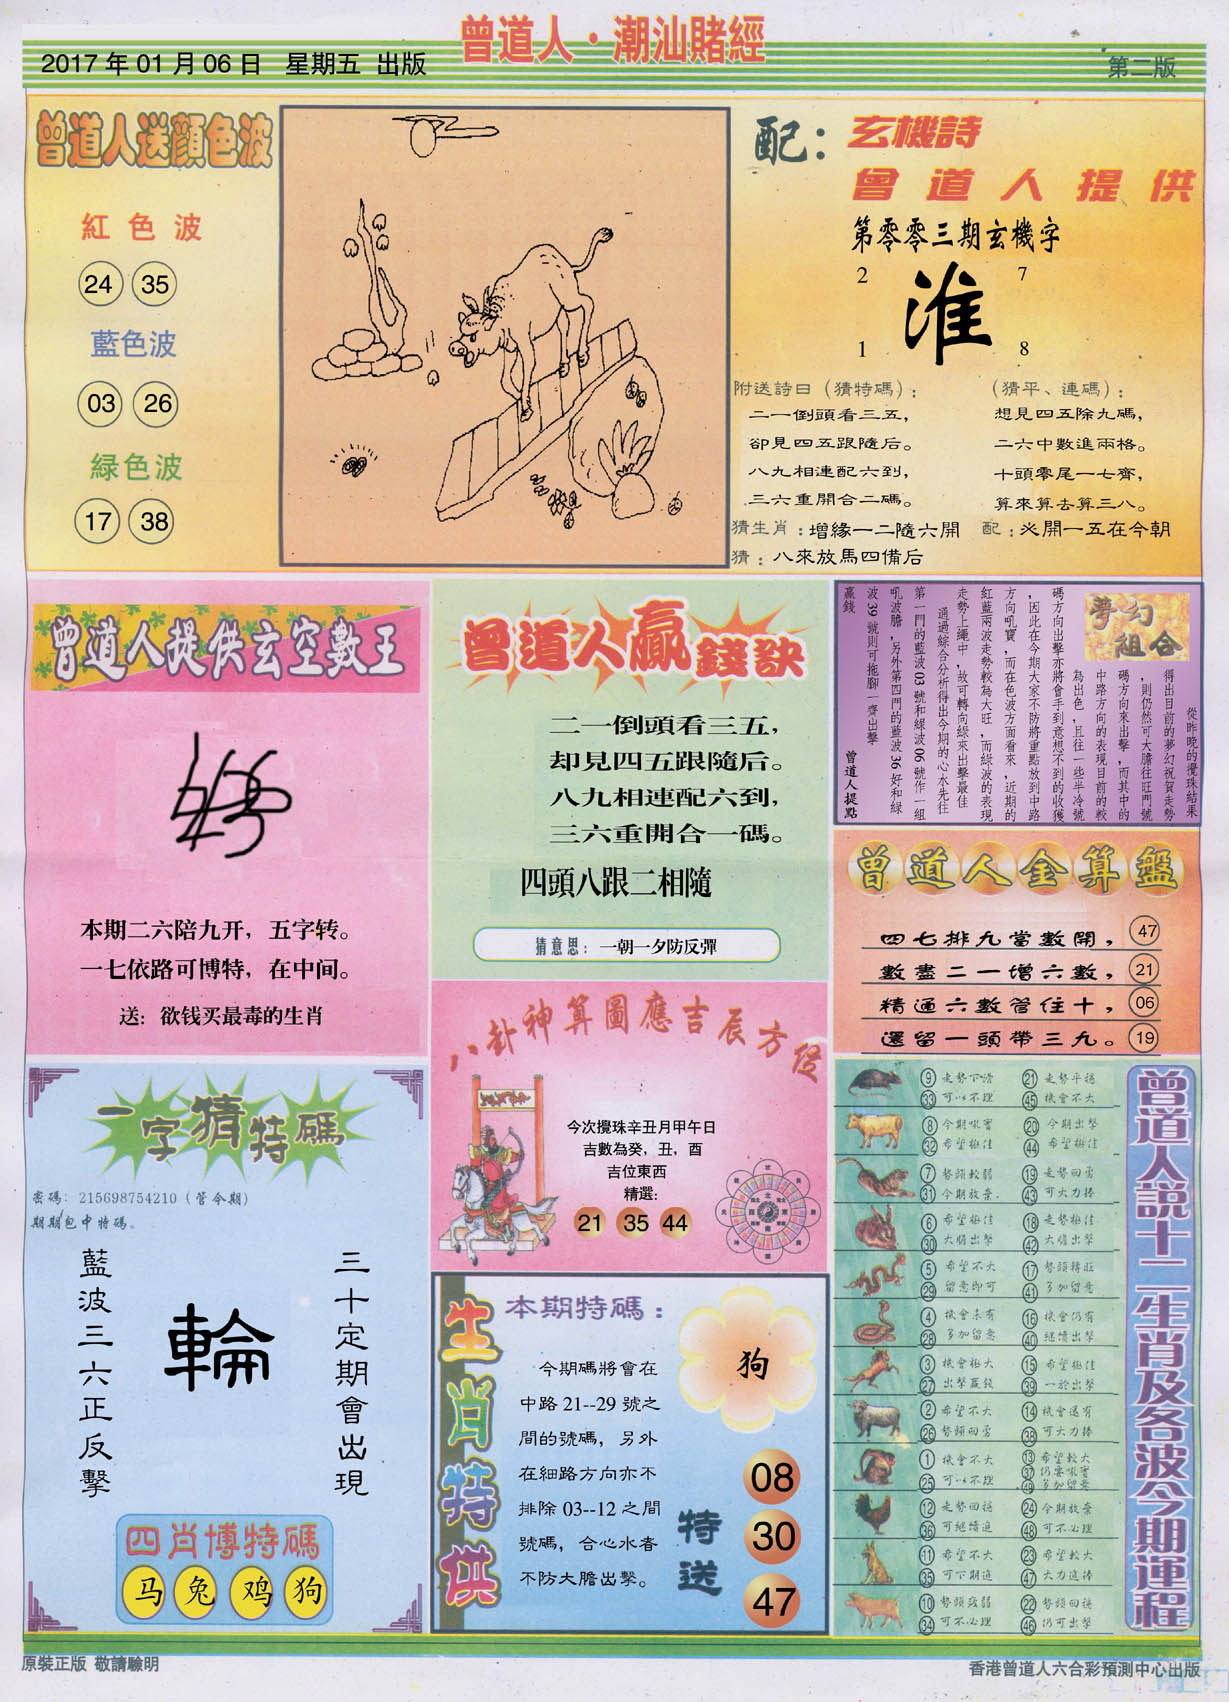 曾道人·潮汕賭經
2017年01月06日 星期五 出版
第二版
曾道人送顏色波
紅色波
24 35
藍色波
03 26
緑色波
17 38
配：玄機詩
曾道人提供
第零零三期玄機字
2 7
淮
1 8
附送詩曰（猜特碼）：
二一倒頭看三五，
卻見四五跟隨后。
八九相連配六到，
三六重開合二碼。
（猜平、連碼）：
想見四五除九碼，
二六中數進兩格。
十頭零尾一七齊，
算來算去算三八。
猜生肖：增緣一二隨六開
配：必開一五在今朝
猜：八來放馬四備后
曾道人提供玄空數王
本期二六陪九开，五字转。
一七依路可博特，在中间。
送：欲钱买最毒的生肖
曾道人贏錢訣
二一倒頭看三五，
却見四五跟隨后。
八九相連配六到，
三六重開合一碼。
四頭八跟二相隨
猜意思：一朝一夕防反彈
夢幻組合
從昨晚的攪珠結果
得出目前的夢幻祝賀走勢
，則仍然可大膽往旺門號
碼方向來出擊，而其中的
中路方向的表現目前的較
為出色，且往一些半冷號
碼方向出擊亦將會手到意想不到的收獲
，因此在今期大家不防將重點放到中路
方向吼寶，而在色波方面看來，近期的
紅藍兩波走勢較為大旺，而綠波的表現
走勢上繩中，故可轉向綠來出擊最佳
通過綜合分析得出今期的心水先往
第一門的藍波03號和綠波06號作一組
吼波膽，另外第四門的藍波36好和綠
波39號則可拖腳一齊出擊
贏錢
曾道人提點
曾道人金算盤
四七排九當數開， 47
數盡二一增六數， 21
精通六數管住十， 06
還留一頭帶三九。 19
一字猜特碼
密碼：215698754210（管今期）
期期包中特碼。
三十定期會出現
輪
藍波三六正反擊
四肖博特碼
马 兔 鸡 狗
八卦神算圖應吉辰方位
今次攪珠辛丑月甲午日
吉數為癸，丑，酉
吉位東西
精選：
21 35 44
生肖特供
本期特碼：
狗
今期碼將會在
中路21--29號之
間的號碼，另外
在細路方向亦不
排除03--12之間
號碼，合心水者
不防大膽出擊。
特送
08
30
47
曾道人説十二生肖及各波今期運程
⑨ 走勢下滑 ㉑ 走勢平穩
㉝ 可以不理 ㊺ 機會不大
⑧ 今期吼寶 ⑳ 今期出擊
㉜ 希望極佳 ㊹ 希望極佳
⑦ 勢頭較弱 ⑲ 走勢回勇
㉛ 今期放棄. ㊸ 可大力捧
⑥ 希望極佳 ⑱ 走勢極佳
㉚ 大膽出擊 ㊷ 大膽出擊
⑤ 希望不大 ⑰ 勢頭轉旺
㉙ 留意即可 ㊶ 多加留意
④ 機會未有 ⑯ 機會仍有
㉘ 多加留意 ㊵ 繼續出擊
③ 機會極大 ⑮ 希望極佳
㉗ 出擊贏錢 ㊴ 一於出擊
② 希望不大 ⑭ 機會還有
㉖ 勢頭回勇 ㊳ 可大力捧
① 機會不大 ⑬ 希望較大
㉕ 可以不理 ㊲ 仍要吼實
㊾ 多加留意
⑫ 走勢回穩 ㉔ 今期放棄
㊱ 可繼續追 ㊽ 可不必理
⑪ 希望不大 ㉓ 希望較大
㉟ 可下期追 ㊼ 大力追捧
⑩ 勢頭疲弱 ㉒ 勢頭回穩
㉞ 可不必理 ㊻ 仍可出擊
原裝正版 敬請驗明
香港曾道人六合彩預測中心出版